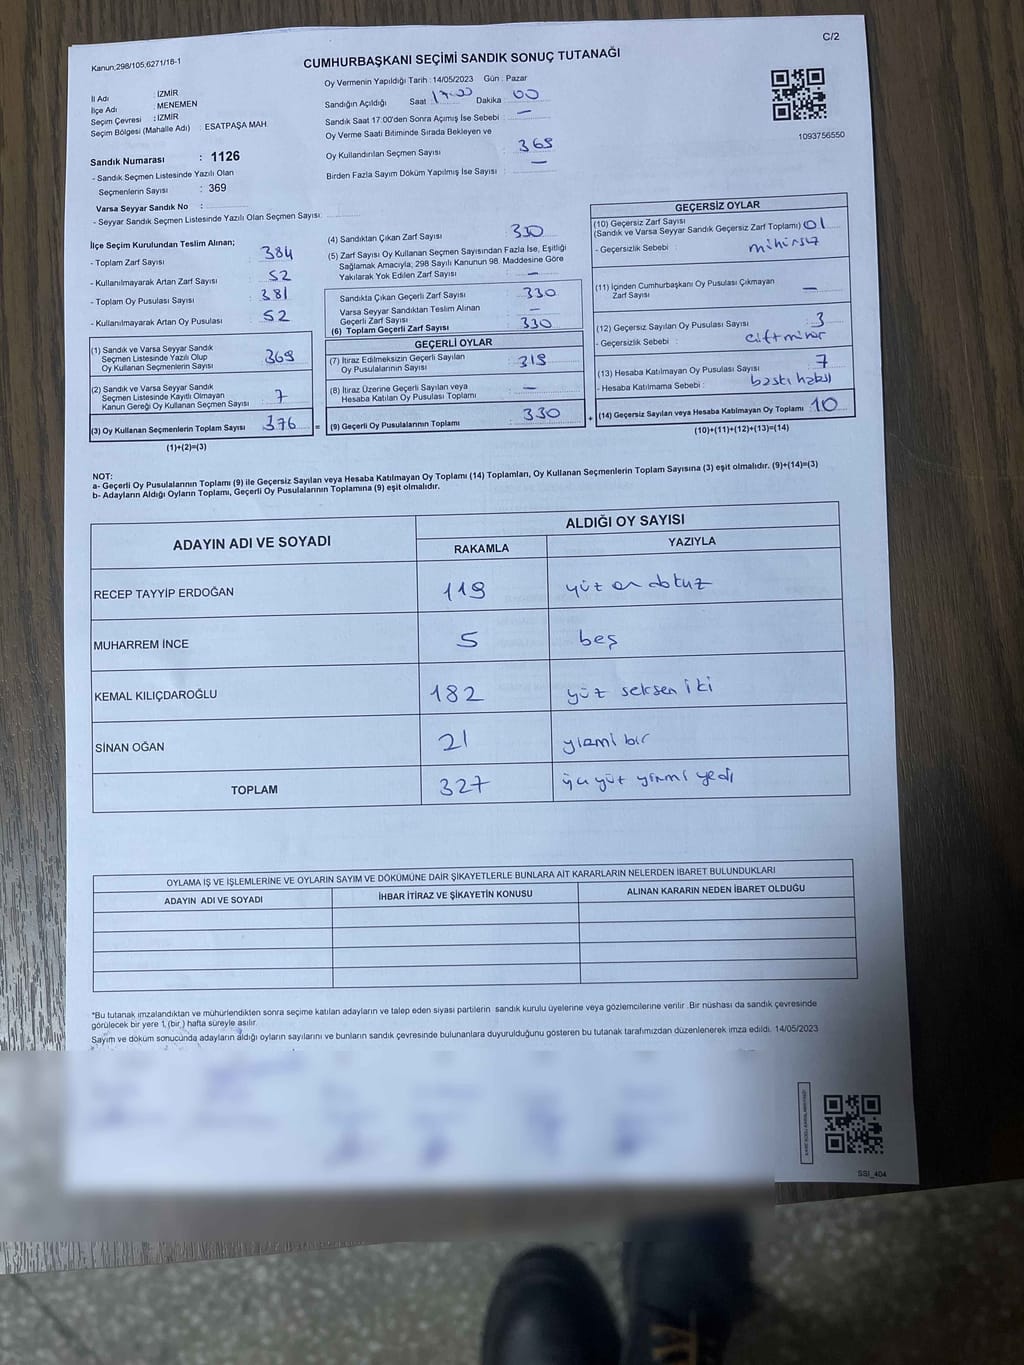 C/2
Kanun,298/105,6271/18-1
CUMHURBAŞKANI SEÇİMİ SANDIK SONUÇ TUTANAĞI
İl Adı : İZMİR
İlçe Adı : MENEMEN
Seçim Çevresi : İZMİR
Seçim Bölgesi (Mahalle Adı) : ESATPAŞA MAH.
Sandık Numarası : 1126
- Sandık Seçmen Listesinde Yazılı Olan
Seçmenlerin Sayısı : 369
Varsa Seyyar Sandık No :
- Seyyar Sandık Seçmen Listesinde Yazılı Olan Seçmen Sayısı:
Oy Vermenin Yapıldığı Tarih : 14/05/2023 Gün : Pazar
Sandığın Açıldığı Saat 17:00 Dakika 00
Sandık Saat 17:00'den Sonra Açımış İse Sebebi : —
Oy Verme Saati Bitiminde Sırada Bekleyen ve
Oy Kullandırılan Seçmen Sayısı : 369
Birden Fazla Sayım Döküm Yapılmış İse Sayısı : —
1093756550
İlçe Seçim Kurulundan Teslim Alınan;
- Toplam Zarf Sayısı : 384
- Kullanılmayarak Artan Zarf Sayısı : 52
- Toplam Oy Pusulası Sayısı : 381
- Kullanılmayarak Artan Oy Pusulası : 52
(1) Sandık ve Varsa Seyyar Sandık
Seçmen Listesinde Yazılı Olup
Oy Kullanan Seçmenlerin Sayısı : 369
(2) Sandık ve Varsa Seyyar Sandık
Seçmen Listesinde Kayıtlı Olmayan
Kanun Gereği Oy Kullanan Seçmen Sayısı : 7
(3) Oy Kullanan Seçmenlerin Toplam Sayısı : 376
(1)+(2)=(3)
(4) Sandıktan Çıkan Zarf Sayısı : 330
(5) Zarf Sayısı Oy Kullanan Seçmen Sayısından Fazla İse, Eşitliği
Sağlamak Amacıyla; 298 Sayılı Kanunun 98. Maddesine Göre
Yakılarak Yok Edilen Zarf Sayısı : —
Sandıkta Çıkan Geçerli Zarf Sayısı : 330
Varsa Seyyar Sandıktan Teslim Alınan
Geçerli Zarf Sayısı : —
(6) Toplam Geçerli Zarf Sayısı : 330
GEÇERLİ OYLAR
(7) İtiraz Edilmeksizin Geçerli Sayılan
Oy Pusulalarının Sayısı : 319
(8) İtiraz Üzerine Geçerli Sayılan veya
Hesaba Katılan Oy Pusulası Toplamı : —
= (9) Geçerli Oy Pusulalarının Toplamı : 330
GEÇERSİZ OYLAR
(10) Geçersiz Zarf Sayısı
(Sandık ve Varsa Seyyar Sandık Geçersiz Zarf Toplamı) 01
- Geçersizlik Sebebi : mühürsüz
(11) İçinden Cumhurbaşkanı Oy Pusulası Çıkmayan
Zarf Sayısı : —
(12) Geçersiz Sayılan Oy Pusulası Sayısı : 3
- Geçersizlik Sebebi :
(13) Hesaba Katılmayan Oy Pusulası Sayısı : 7
- Hesaba Katılmama Sebebi : baskı
+ (14) Geçersiz Sayılan veya Hesaba Katılmayan Oy Toplamı : 10
(10)+(11)+(12)+(13)=(14)
NOT:
a- Geçerli Oy Pusulalarının Toplamı (9) ile Geçersiz Sayılan veya Hesaba Katılmayan Oy Toplamı (14) Toplamları, Oy Kullanan Seçmenlerin Toplam Sayısına (3) eşit olmalıdır. (9)+(14)=(3)
b- Adayların Aldığı Oyların Toplamı, Geçerli Oy Pusulalarının Toplamına (9) eşit olmalıdır.
ADAYIN ADI VE SOYADI
ALDIĞI OY SAYISI
RAKAMLA YAZIYLA
RECEP TAYYİP ERDOĞAN 119 yüz on dokuz
MUHARREM İNCE 5 beş
KEMAL KILIÇDAROĞLU 182 yüz seksen iki
SİNAN OĞAN 21 yirmi bir
TOPLAM 327 üç yüz yirmi yedi
OYLAMA İŞ VE İŞLEMLERİNE VE OYLARIN SAYIM VE DÖKÜMÜNE DAİR ŞİKAYETLERLE BUNLARA AİT KARARLARIN NELERDEN İBARET BULUNDUKLARI
ADAYIN ADI VE SOYADI İHBAR İTİRAZ VE ŞİKAYETİN KONUSU ALINAN KARARIN NEDEN İBARET OLDUĞU
*Bu tutanak imzalandıktan ve mühürlendikten sonra seçime katılan adayların ve talep eden siyasi partilerin sandık kurulu üyelerine veya gözlemcilerine verilir. Bir nüshası da sandık çevresinde
görülecek bir yere 1 (bir ) hafta süreyle asılır.
Sayım ve döküm sonucunda adayların aldığı oyların sayılarını ve bunların sandık çevresinde bulunanlara duyurulduğunu gösteren bu tutanak tarafımızdan düzenlenerek imza edildi. 14/05/2023
SSI_404